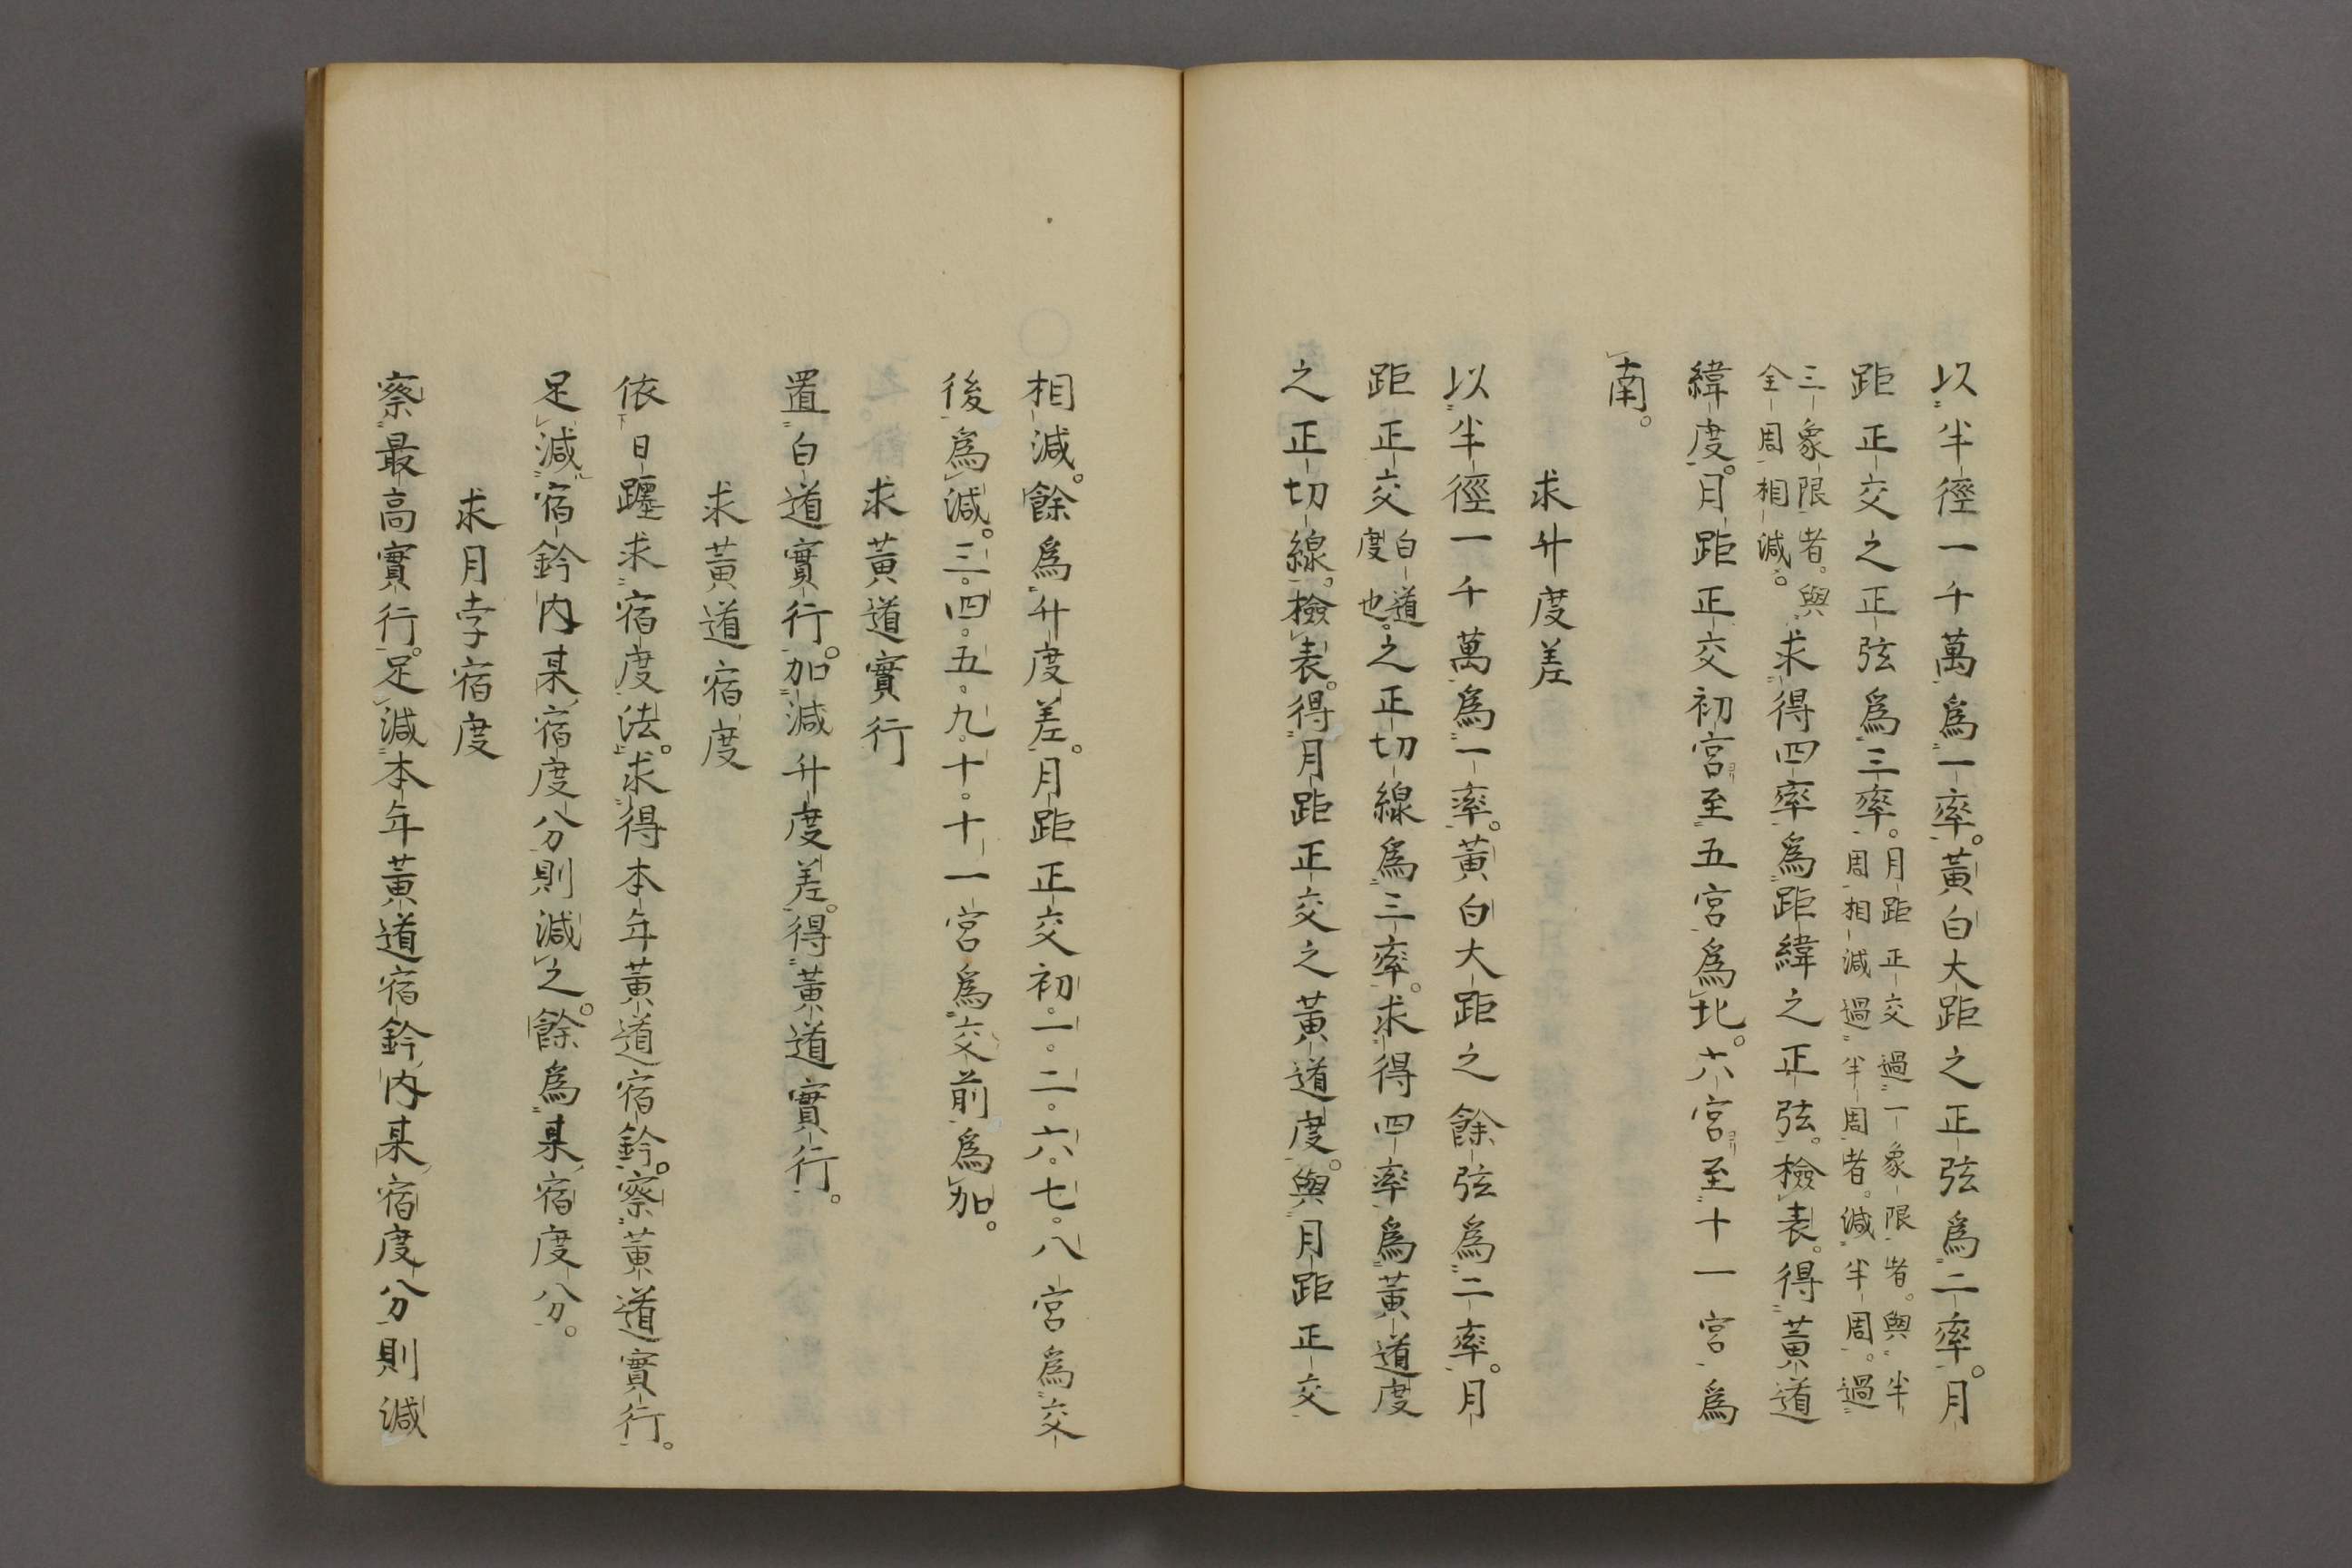 以半徑一千萬爲一率。黃白大距之正弦爲二率。月
距正交之正弦爲三率。月距正交過一象限者。與半
周相減過半周者。減半周。過
三象限者。與
全周相減。求得四率爲距緯之正弦。檢表。得黃道
緯度。月距正交初宮至五宮爲北。六宮至十一宮爲
南。
求升度差
以半徑一千萬爲一率。黃白大距之餘弦爲二率。月
距正交白道
度也。之正切線爲三率。求得四率爲黃道度
之正切線。檢表。得月距正交之黃道度。與月距正交
相減。餘爲升度差。月距正交初。一。二。六。七。八宮爲交
後爲減。三。四。五。九。十。十一宮爲交前爲加。
求黃道實行
置白道實行。加減升度差。得黃道實行。
求黃道宿度
依日躔求宿度法。求得本年黃道宿鈐。察黃道實行。
足減宿鈐内某宿度分則減之。餘爲某宿度分。
求月孛宿度
察最高實行。足減本年黃道宿鈐内某宿度分則減